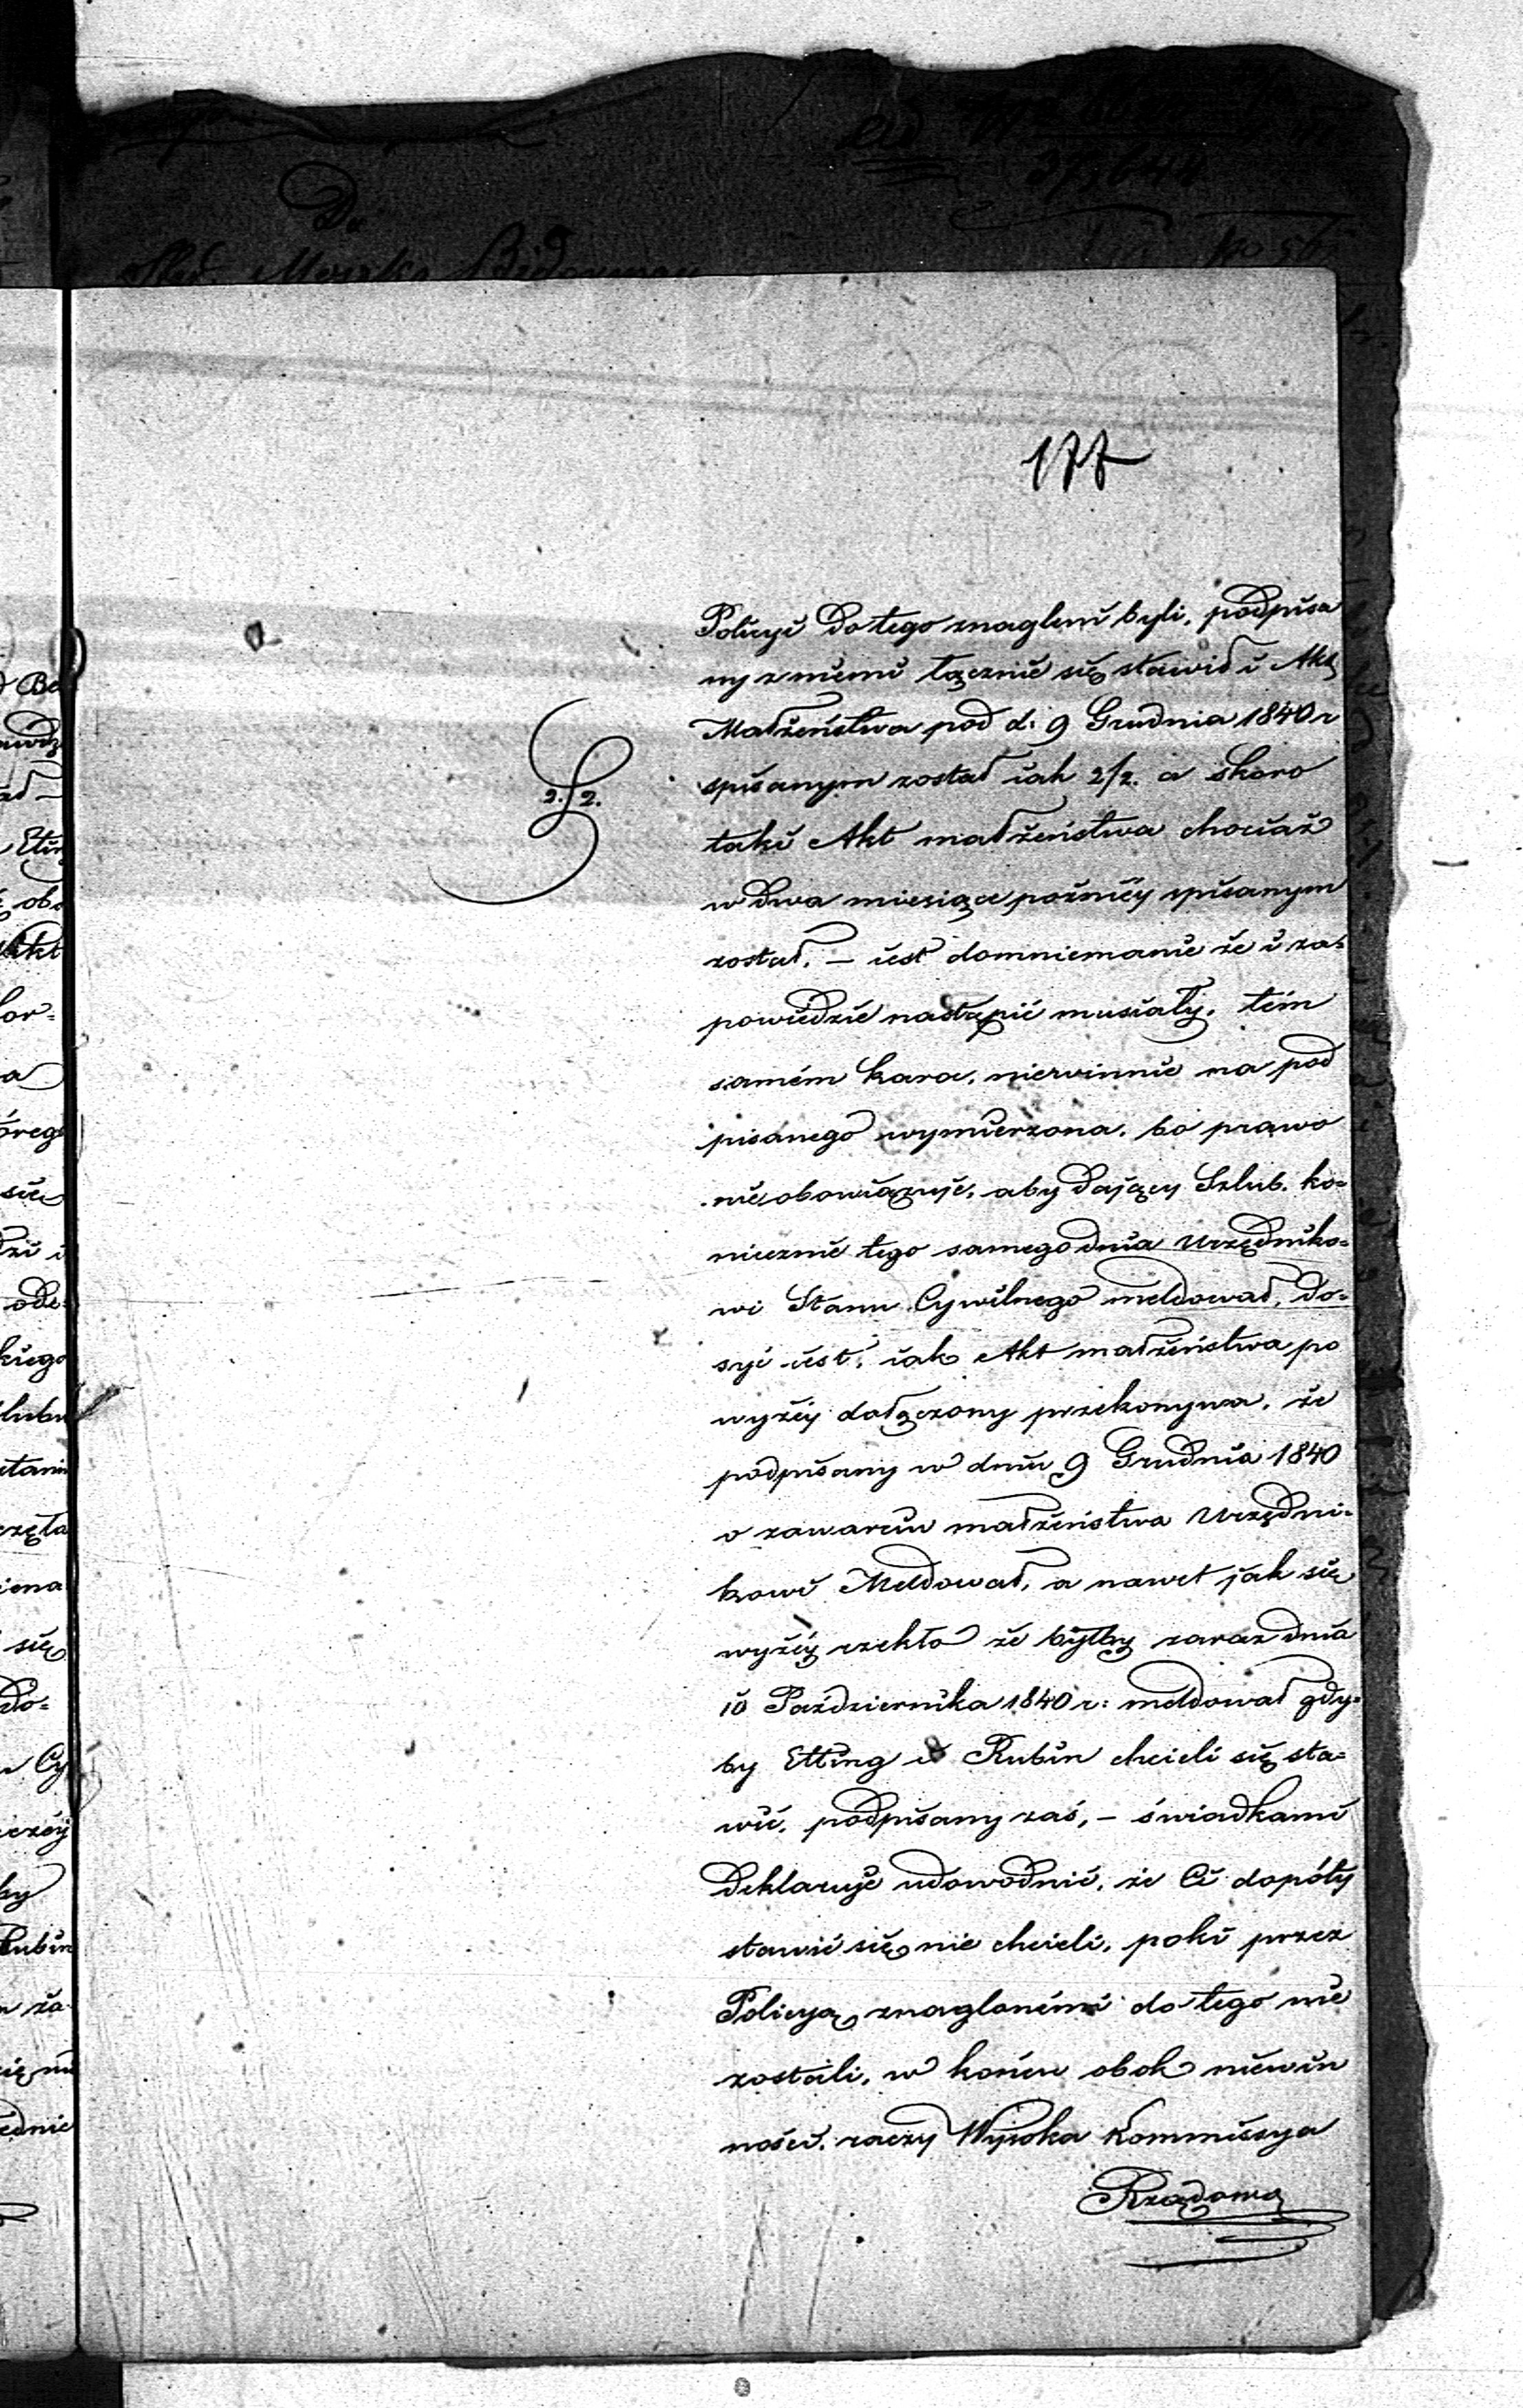 177
Policyi do tego znagleni byli, podpisa
ny z niemi łącznie się stawił i Akt
Małżeństwa pod d: 9 Grudnia 1840 r
spisanym został iak 2/2. a skoro
2./2.
taki Akt małżeństwa chociaż
w dwa miesiące poźniéy spisanym
został, – iest domniemanie że i za=
powiedzie nastąpić musiały, tém
samém kara, niewinnie na pod
pisanego wymierzona, bo prawo
nie obowiązuje, aby dający Szlub, ko=
niecznie tego samego dnia Urzędniko=
wi Stanu Cywilnego meldował, do=
syć iest, iak Akt małżeństwa po
wyżéy dołączony przekonywa, że
podpisany w dniu 9 Grudnia 1840
o zawarciu małżeństwa Urzędni=
kowi Meldował, a nawet jak się
wyżéy rzekło że byłby zaraz dnia
10 Października 1840 r: meldował gdy=
by Etting i Rubin chcieli się sta=
wić, podpisany zaś, – świadkami
deklaruje udowodnić, że Ci dopóty
stawić się nie chcieli, poki przez
Policyą znaglonémi do tego nie
zostali, w końcu obok niewin
ności, raczy Wysoka Kommissya
Rządowa